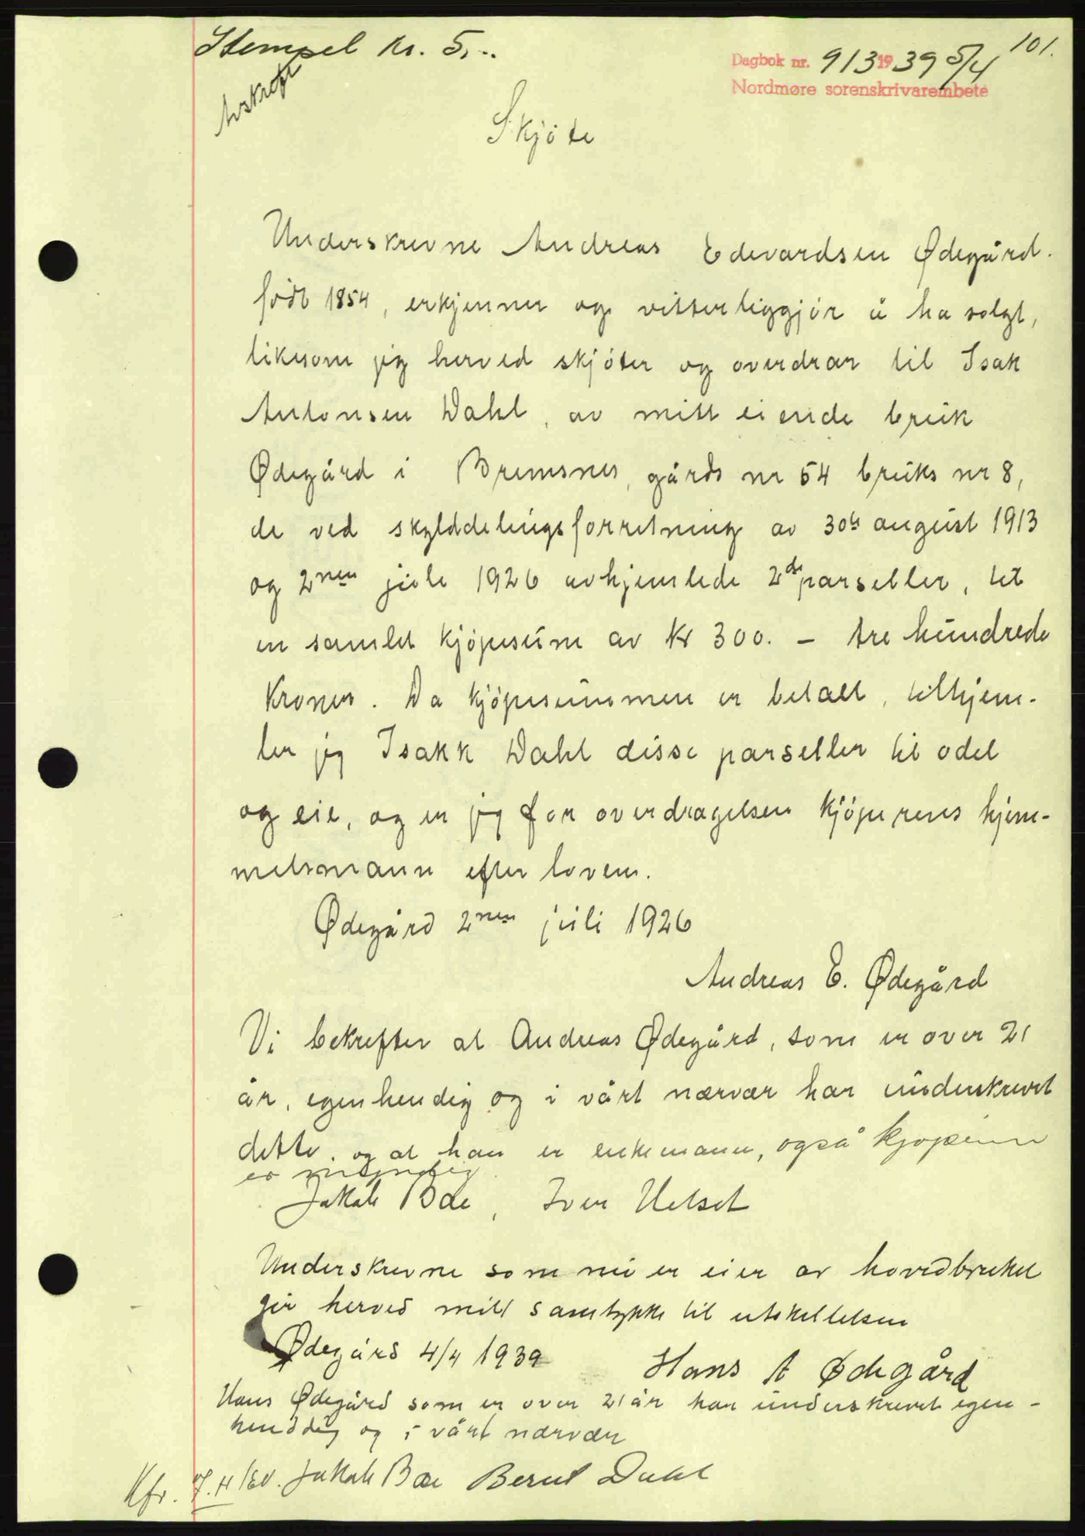 Stempel kr. 5,-.
Avskrift
101.
Dagbok nr. 913 1939 5/4
Nordmøre sorenskrivarembete
Skjöte
Underskrevne Andreas Edevardsen Ødegård.
födt 1854, erkjenner og vitterliggjör å ha solgt,
likesom jeg herved skjöter og overdrar til Isak
Antonsen Dahl, av mitt eiende bruk
Ødegård i Bremsnes, gårds nr 54 bruks nr 8,
de ved skylddelingsforretning av 30te august 1913
og 2nen juli 1926 avhjemlede 2de parseller, til
en samlet kjöpesum av kr 300. – tre hundrede
kroner. Da kjöpesummen er betalt, tilhjem-
ler jeg Isakk Dahl disse parseller til odel
og eie, og er jeg for overdragelsen kjöperens hjem-
melsmann efter loven.
Ødegård 2nen juli 1926
Andreas E. Ødegård
Vi bekrefter at Andreas Ødegård, som er over 21
år, egenhendig og i vårt nærvær har underskrevet
dette. og at han er enkemann, også kjøperen
er myndig.
Jakob Bae, Iver Helset
Underskrevne som nu er eier av hovedbruket
gir herved mitt samtykke til utskillelsen
Ødegård 4/4 1939
Hans A Ødegård
Hans Ødegård som er over 21 år har underskrevet egen-
hendig og i vårt nærvær
Jakob Bae Bernt Dahl
Kfr.